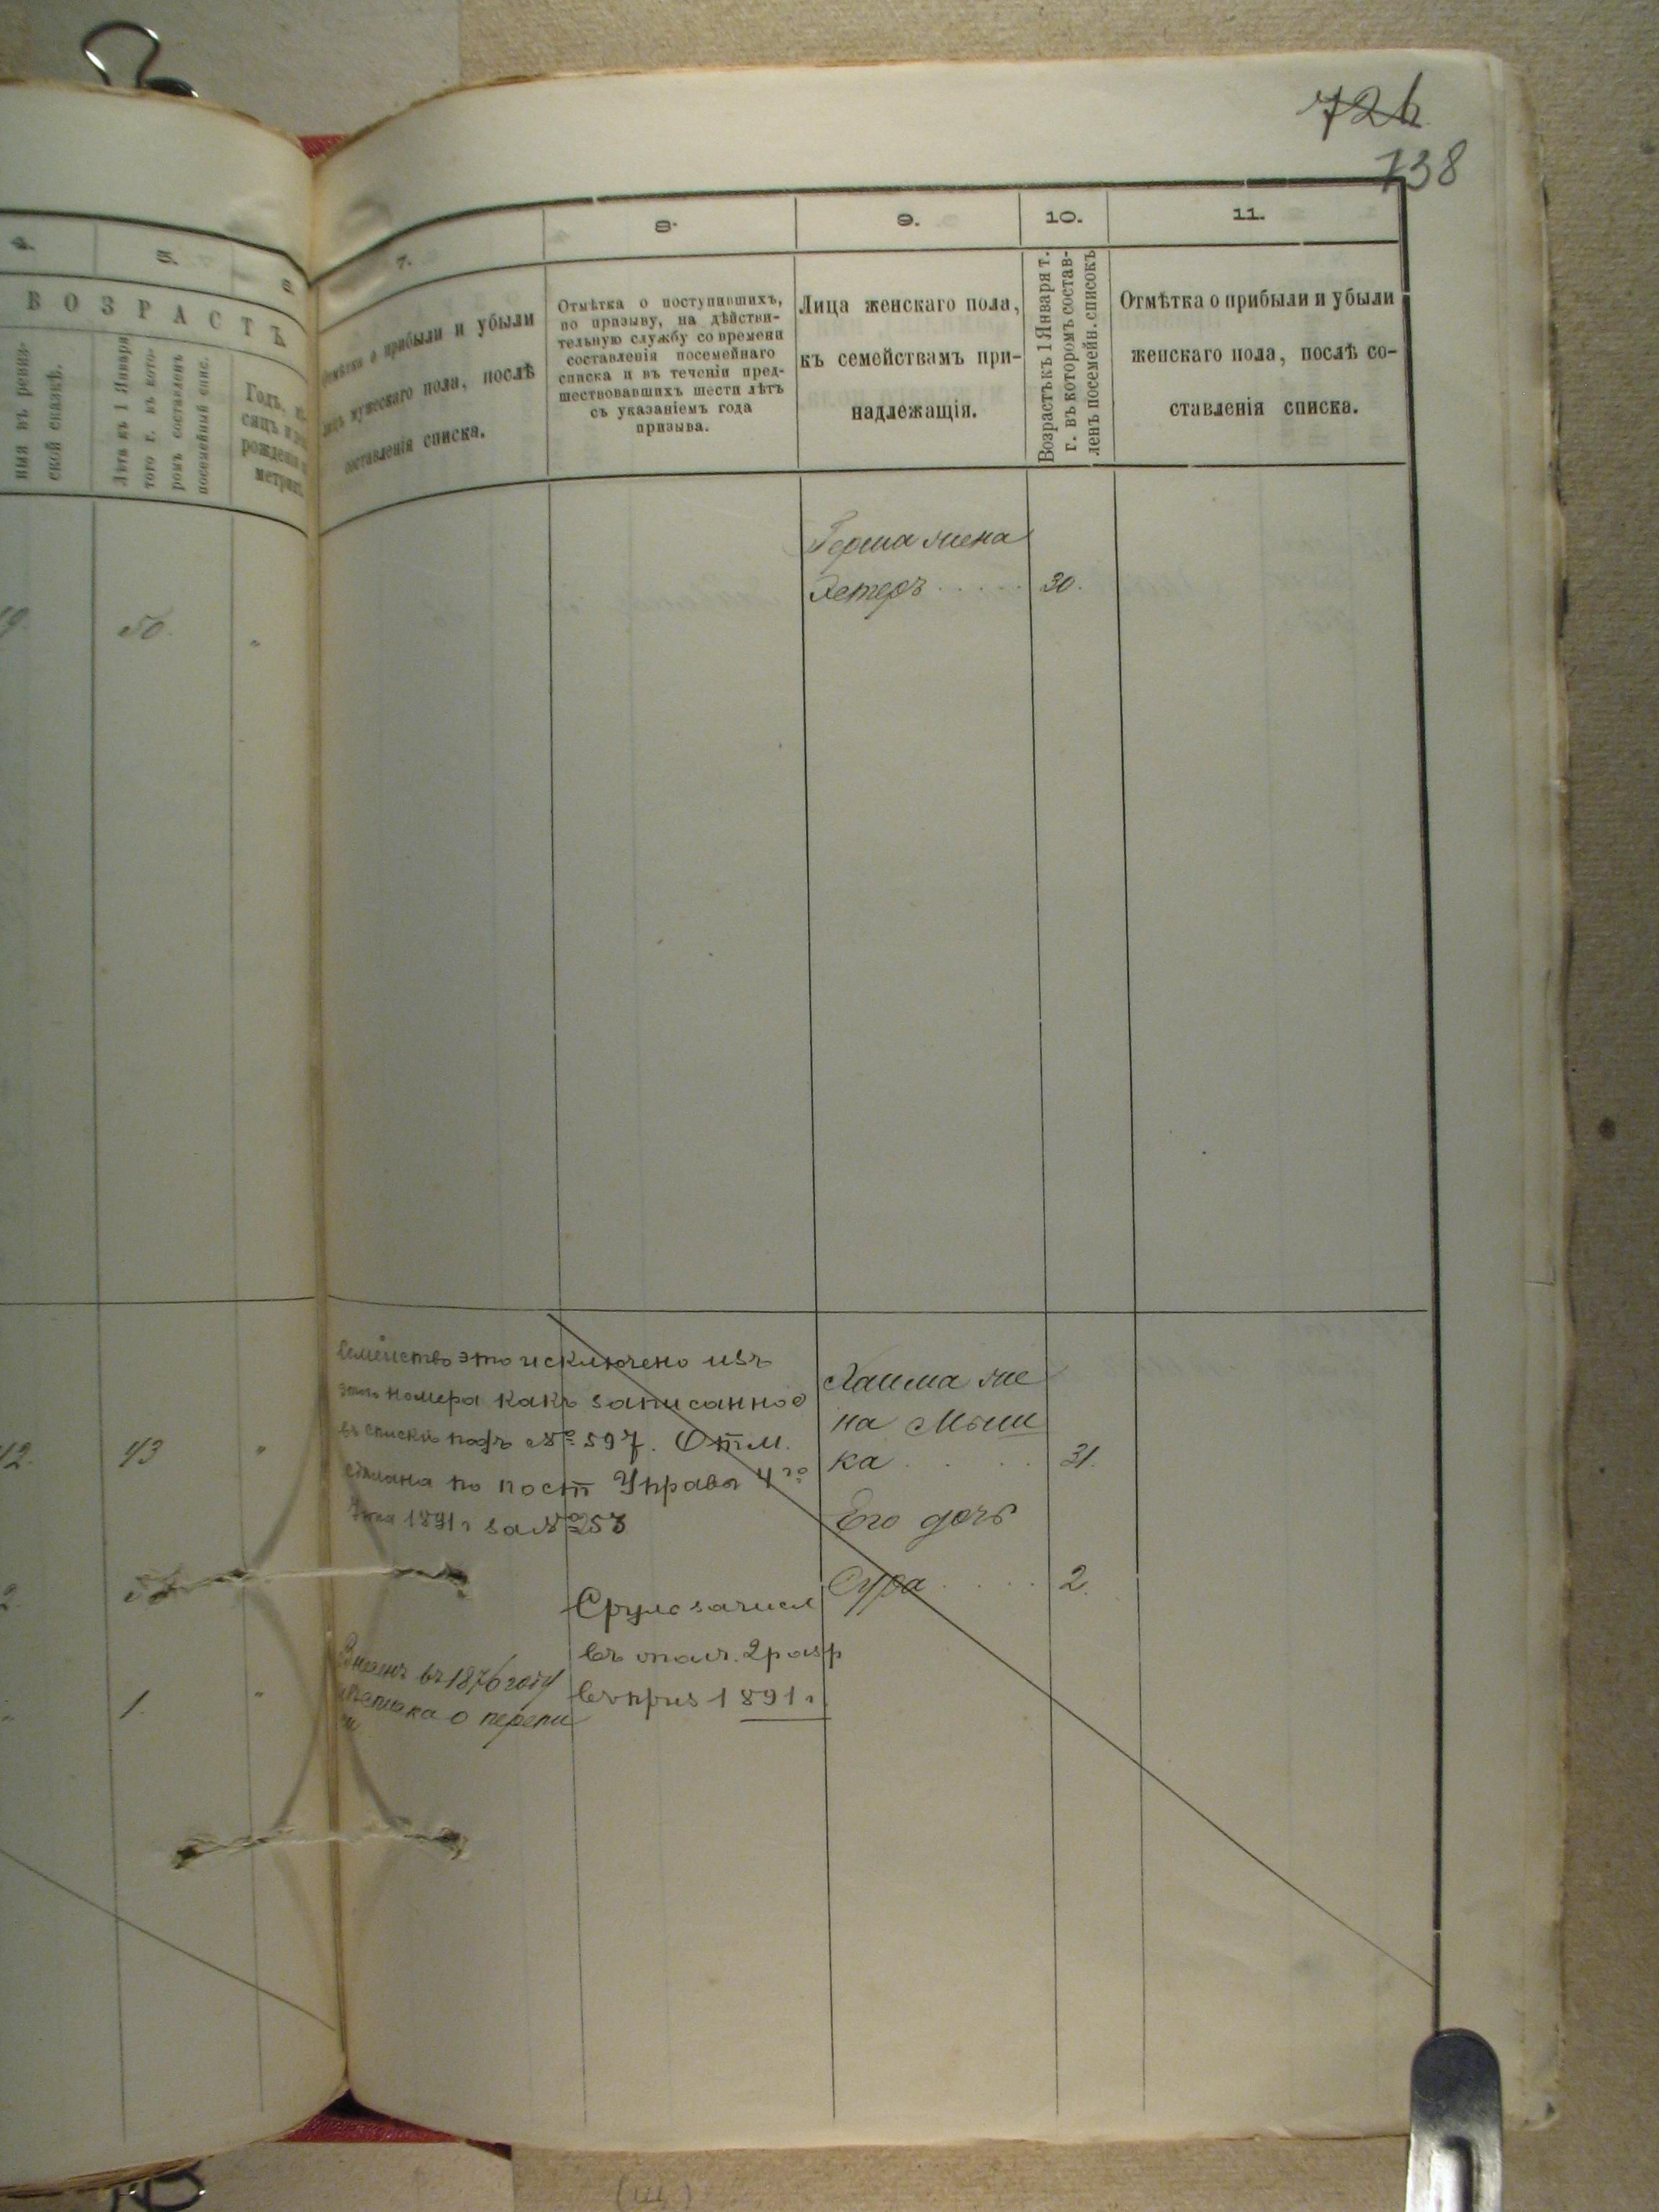 726
738
4.
5.
7.
8.
9.
10.
11.
ВОЗРАСТЪ
ской сказкѣ.
Лѣта къ 1 Января
того г. въ кото-
ромъ составленъ
посемейный спис.
Отмѣтка о прибыли и убыли
лицъ мужескаго пола, послѣ
составленія списка.
Отмѣтка о поступившихъ,
по призыву, на дѣйстви-
тельную службу со времени
составленія посемейнаго
списка и въ теченіи пред-
шествовавшихъ шести лѣтъ
съ указаніемъ года
призыва.
Лица женскаго пола,
къ семействамъ при-
надлежащія.
Возрастъ къ 1 Января т.
г. въ которомъ состав-
ленъ посемейн. списокъ
Отмѣтка о прибыли и убыли
женскаго пола, послѣ со-
ставленія списка.
50.
Герша жена
Эстеръ 30.
43
1.
Семейство это исключено изъ
номера какъ записанное
въ списки подъ № 597. Отм.
сдѣлана по пост Управы 4го
1891 г за № 258
Сруль зачисл
въ опол. 2 разр
въ приз 1891 г.
въ 1876 году
о перепи
Хаима же
на Мыш
ка 31.
Его дочь
Сура 2.